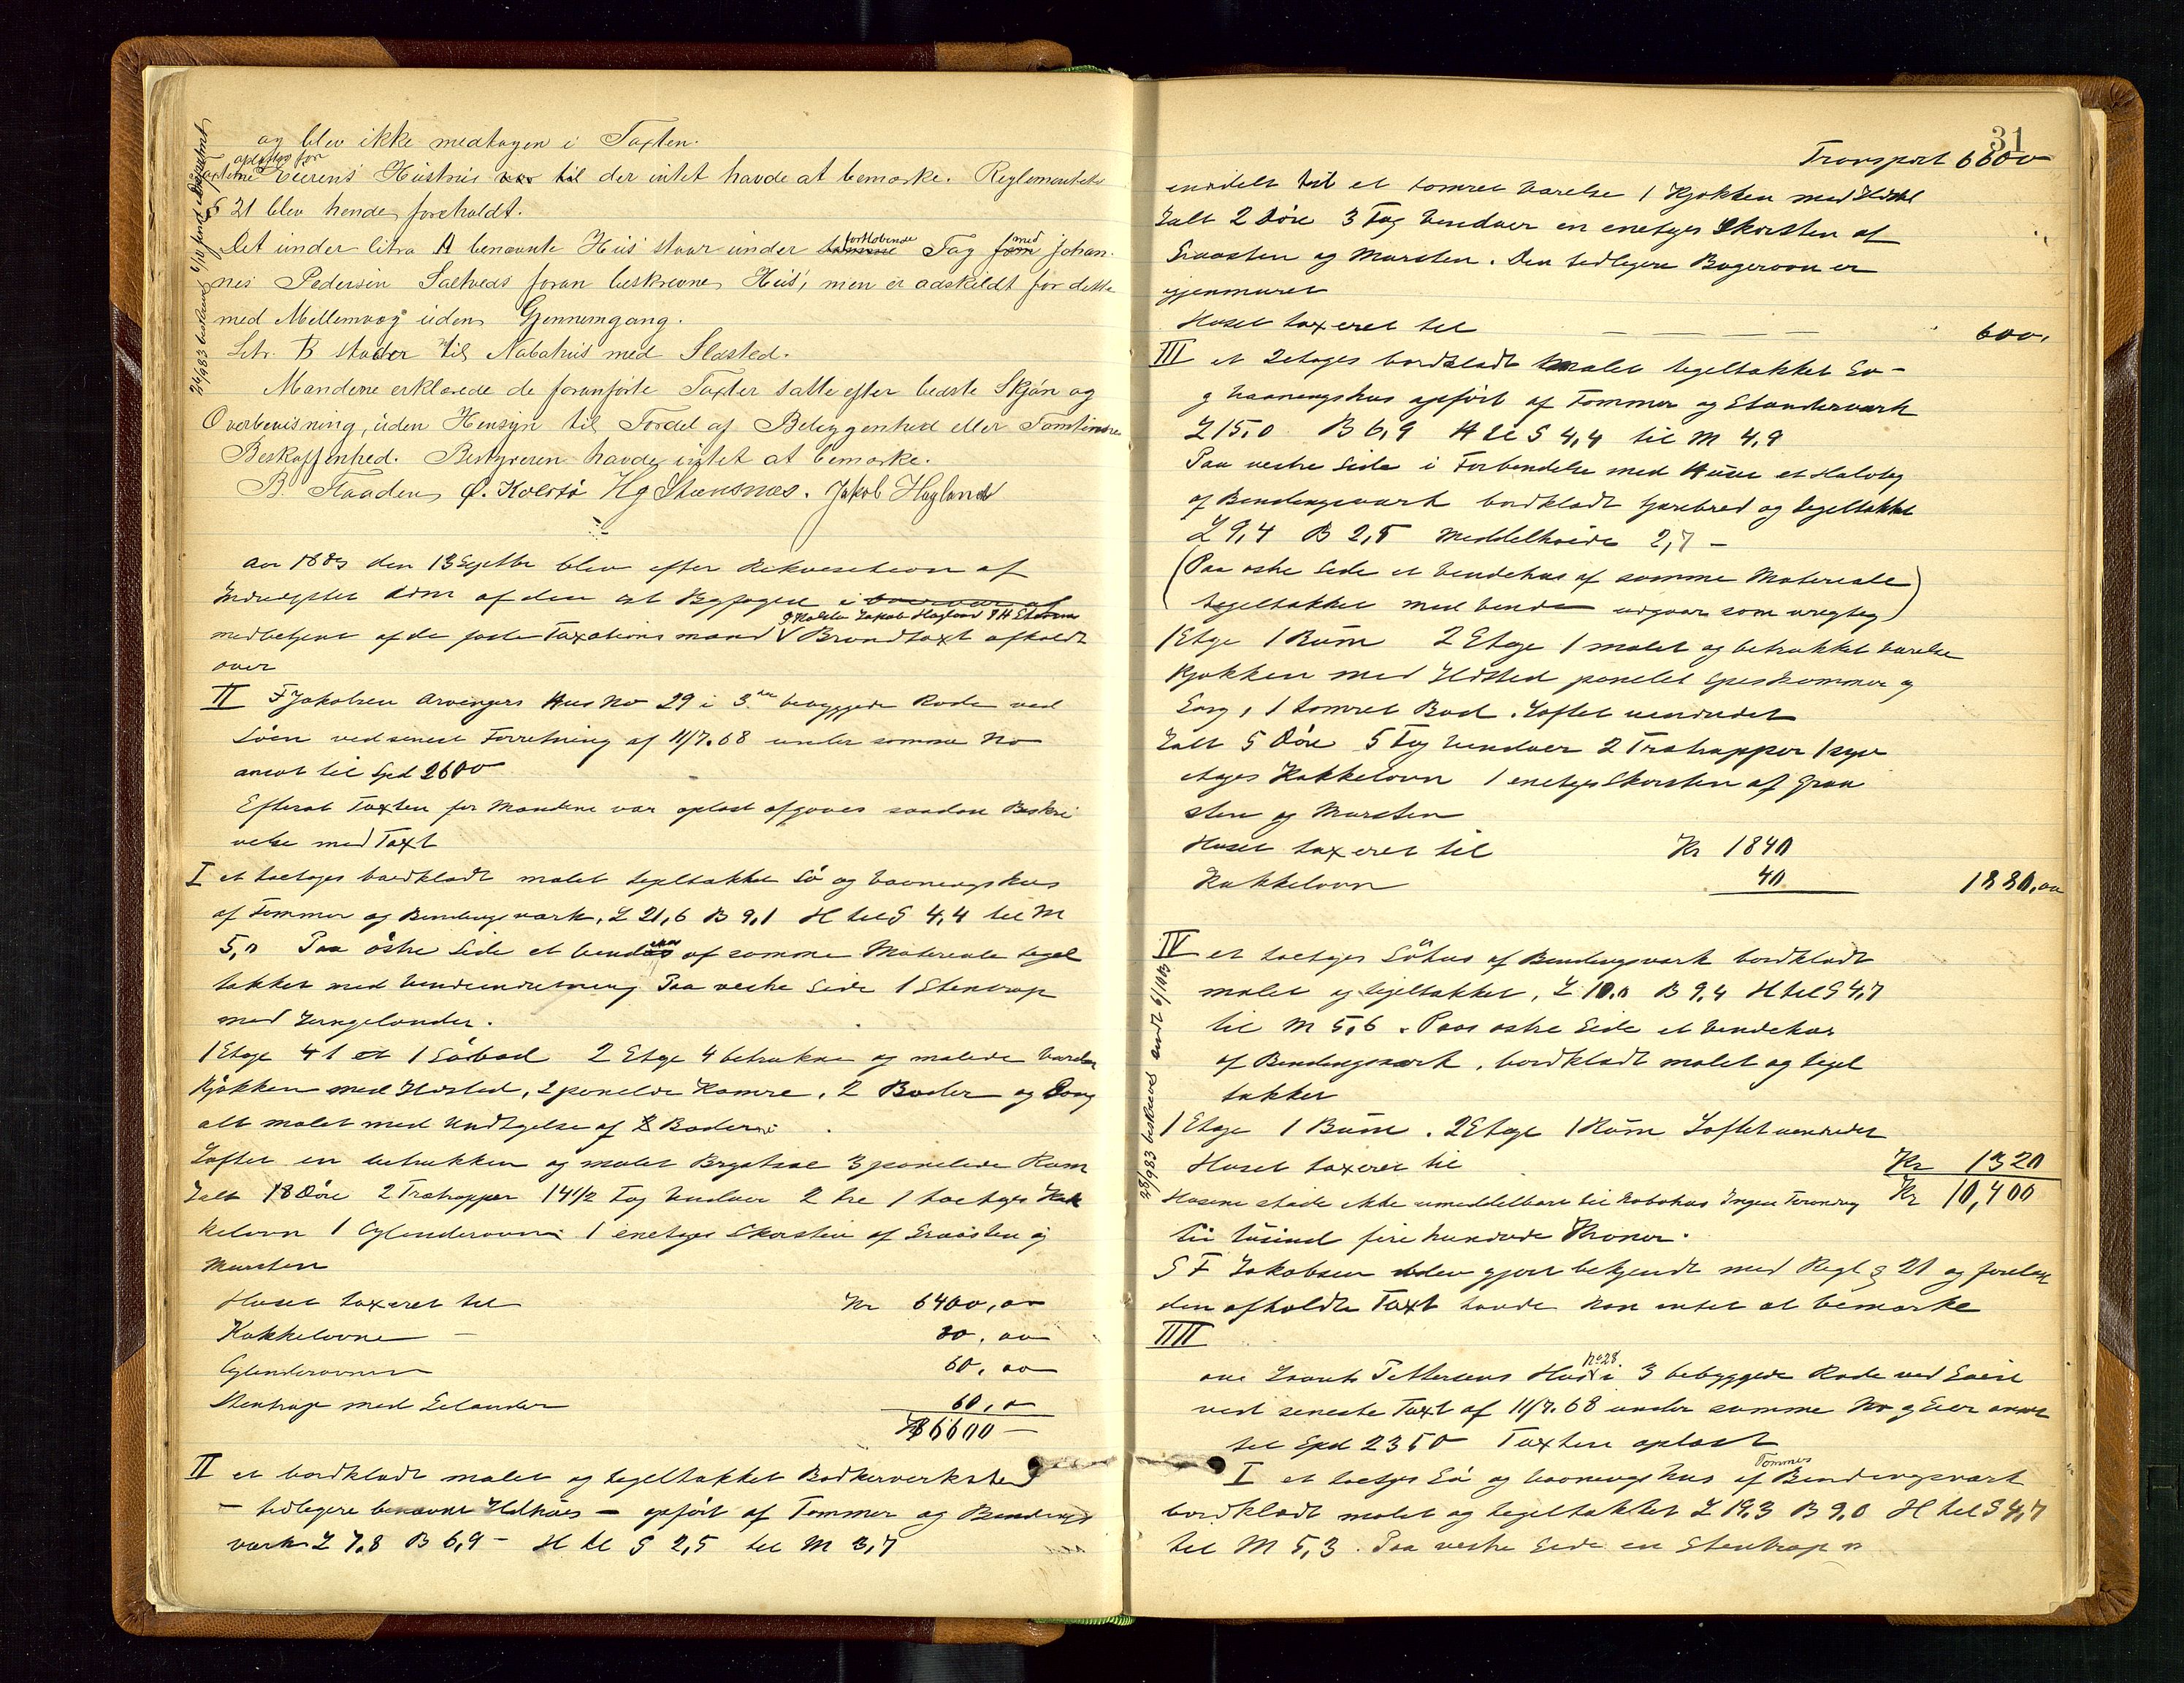 og blev ikke medtagen i Taxten.
Taxterne oplæstes for Eierens Hustrue der intet havde at bemærke. Reglementets
§ 21 blev hende foreholdt.
Det under litra A benævnte Huus staar under fortløbende Tag med Johan-
nes Pedersen Saltveds foran beskrevne Huus, men er adskildt fra dette
med Mellemvæg uden Gjennemgang.
Litr. B støder til Nabohuus med Ildsted.
Mændene erklærede de foranførte Taxter satte efter bedste Skjøn og
Overbeviisning, uden Hensyn til Fordel af Beliggenhed eller Tomternes
Beskaffenhed. Bestyreren havde intet at bemærke.
B. Staaden Ø. Kolstø Hg Steensnæs. Jakob Hagland
Aar 1883 den 13 Septbr blev efter Rekvisition af
af den
medbetjent af de faste Taxationsmænd Ø Kolstø Jakob Hagland Brandtaxt afholdt
over
II F Jakobsen Arvingers Hus No 29 i 3die bebyggede Rode ved
Søen ved senest Forretning af 11/7.68 under samme No
ansat til Spd 2600
Efterat Taxten for Mændene var oplæst afgaves saadan Beskri
velse med Taxt
I et toetages bordklædt malet tegeltækket Sø og Vaaningshus
af Tømmer og Bindingsværk, L 21,6 B 9,1 H til G 4,4 til M
5,0 Paa østre Side et af samme Materiale tegel
tækket med Vindeindretning Paa vestre Side 1 Stentrap
med Jerngelænder.
1 Etage 1 Søbod 2 Etage 4 betrukne og malede Værelser
Kjøkken med Ildsted, 2 panelede Kamre, 2 Boder og Gang
alt malet med Undtagelse af Boderne
Loftet en betrukken og malet 3 panelede Rum
Ialt 18 Døre 2 Trætrapper 14 1/2 Fag Vinduer 2 tre 1 toetages Kak
kelovn 1 Cylinderovn 1 enetages Skorsten af Graasten og
Mursten
Huset taxeret til Kr 6400,00
Kakkelovne 80,00
Cylinderovne 60,00
Stentrap med Gelænder 60,00
6600
II et bordklædt malet og tegeltækket Bødkerverksted
– tidligere benævnt Ildhuus – opført af Tømmer og Bindings
værk L 7,8 B 6,9 – H til G 2,5 til M 3,7
24/9 83 beskreven 6/10
31
Transport 6600
inddelt til et tømret Værelse 1 Kjøkken med Ildsted
Ialt 2 Døre 3 Fag Vinduer en enetages Skorsten af
Graasten og Mursten. Den tidligere Bagerovn er
gjenmuret
Huset taxeret til 600,
III et 2etages bordklædt malet tegeltækket Sø-
g Vaaningshus opført af Tømmer og Standerværk
L 15,0 B 6,9 H til G 4,4 til M 4,9
Paa vestre Side i Forbindelse med Huset et Halvtag
af Bindingsværk bordklædt og tegeltækket
L 9,4 B 2,5 Middelhøide 2,7 –
(Paa østre Side et Vindehus af samme Materiale
tegeltækket med Vinde udgaar som uvigtig)
1 Etage 1 Rum 2 Etage 1 malet og betrukket Værelse
Kjøkken med Ildsted panelet Spiskammer og
Gang, 1 tømret Bod. Loftet uindredet
Ialt 5 Døre 5 Fag Vinduer 2 Trætrapper 1
etages Kakkelovn 1 enetages Skorsten af Graa
sten og Mursten
Huset taxeret til Kr 1840
Kakkelovn 40 1880,00
IV et toetages Søhus af Bindingsværk bordklædt
malet og tegeltækket, L 10,0 B 9,4 H til G 4,7
til M 5,6. Paa østre Side et Vindehus
af Bindingsværk, bordklædt malet og tegel
tækket
1 Etage 1 Rum. 2 Etage 1 Rum Loftet uindredet
Huset taxeret til Kr 1320
Husene støde ikke umiddelbart til Nabohus Ingen Forandring Kr 10,400
Ti tusind fire hundrede Kroner.
S F Jakobsen blev gjort bekjendt med Regl § 21 og forelæst
den afholdte Taxt havde han intet at bemærke
IIII
Pettersens Hus No 28 i 3 bebyggede Rode ved Søen
ved seneste Taxt af 11/7.68 under samme No g Eier ansat
til Spd 2350 Taxten oplæst
I et toetages Sø og Vaaningshus af Tømmer Bindingsværk
bordklædt malet og tegeltækket L 19,3 B 9,0 H til G 4,7
til M 5,3. Paa vestre Side en Stentrap